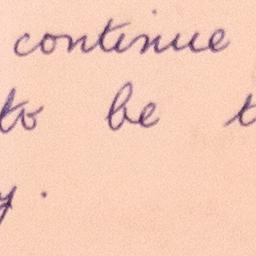 continue
to be t
y.